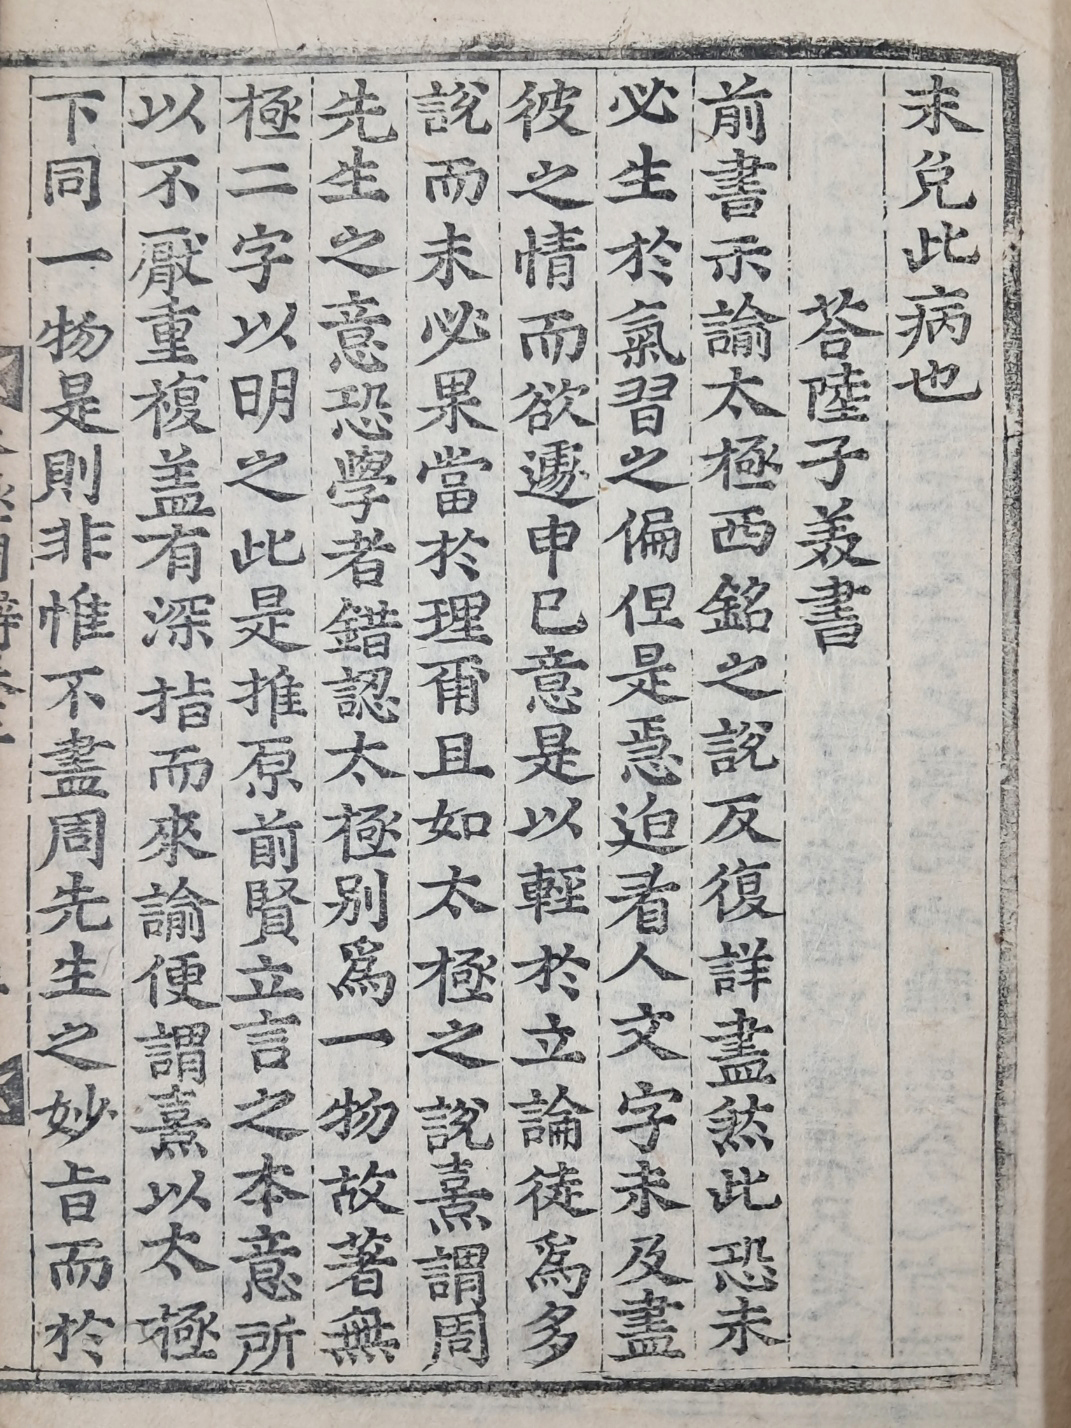 未免此病也
荅陸子美書
前書示諭太極西銘之說反復詳盡然此恐未
必生於氣習之偏但是急迫看人文字未及盡
彼之情而欲遽申已意是以輕於立論徒爲多
說而未必果當於理爾且如太極之說熹謂周
先生之意恐學者錯認太極别爲一物故著無
極二字以明之此是推原前賢立言之本意所
以不厭重複盖有深指而來諭便謂熹以太極
下同一物是則非惟不盡周先生之妙旨而於